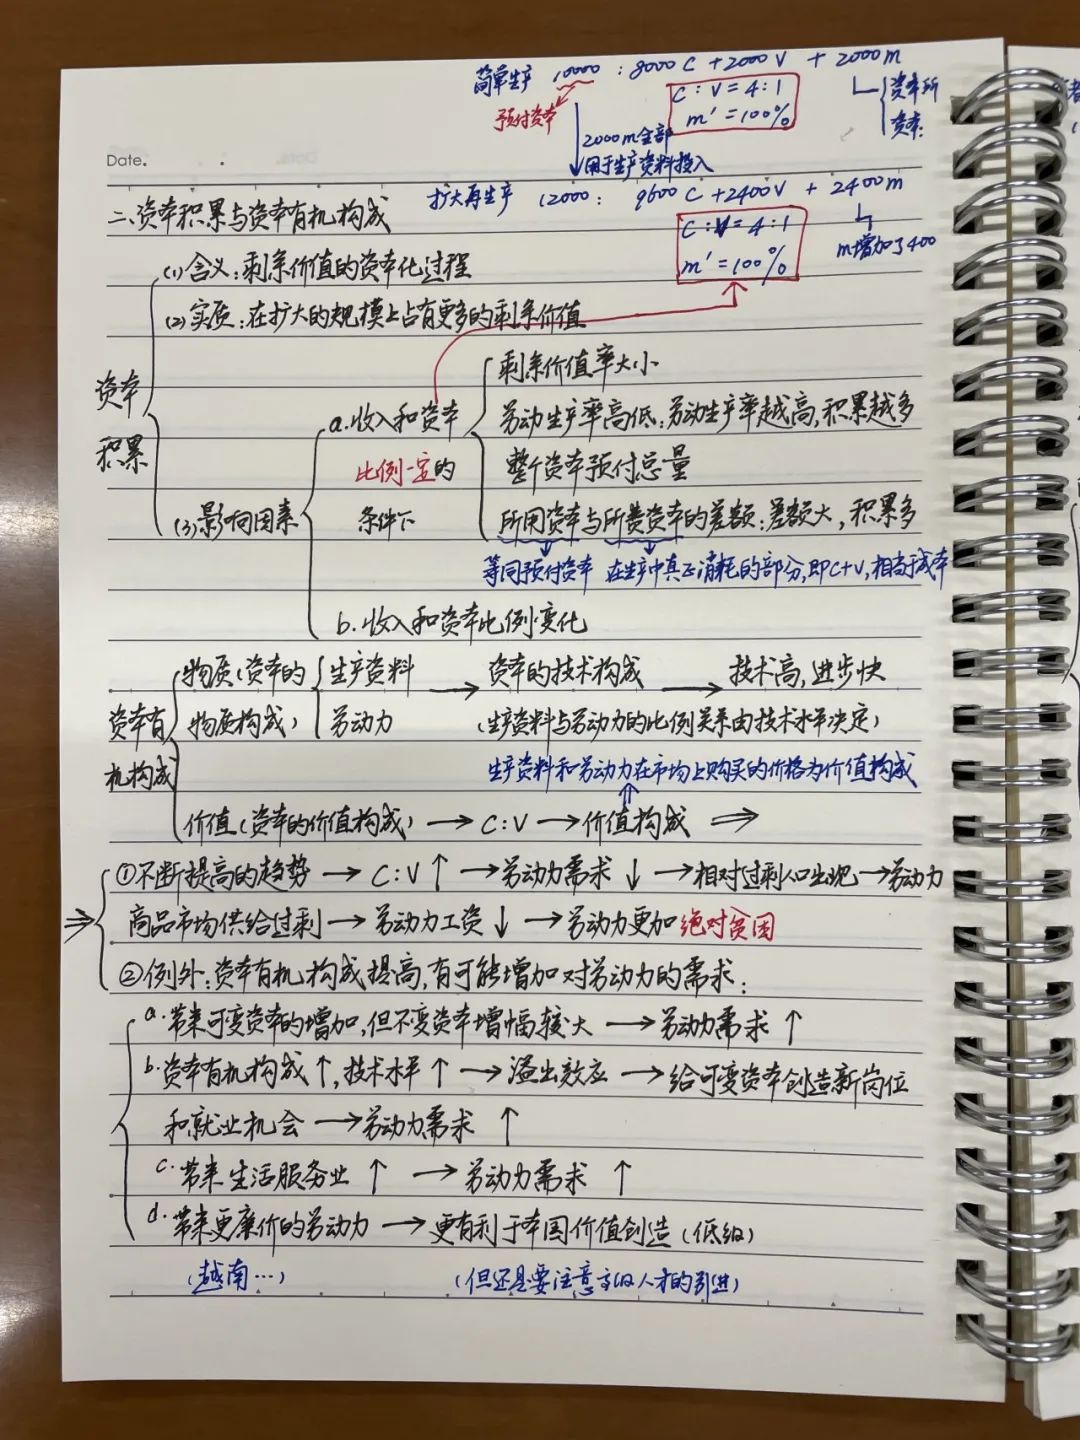 简单生产 10000 : 8000 C + 2000 V + 2000 m
预付资本
C : V = 4 : 1
m' = 100%
资本所
资本
2000 m全部
用于生产资料投入
Date.
扩大再生产 12000 : 9600 C + 2400 V + 2400 m
C : V = 4 : 1
m' = 100%
m增加了400
二、资本积累与资本有机构成
(1)含义:剩余价值的资本化过程
(2)实质:在扩大的规模上占有更多的剩余价值
资本
积累
(3)影响因素
a.收入和资本
比例一定的
条件下
剩余价值率大小
劳动生产率高低:劳动生产率越高,积累越多
整个资本预付总量
所用资本与所费资本的差额:差额大,积累多
等同预付资本 在生产中真正消耗的部分,即C+V,相当于成本
b.收入和资本比例变化
资本有
机构成
物质(资本的
物质构成)
生产资料
劳动力
→ 资本的技术构成 → 技术高,进步快
(生产资料与劳动力的比例关系由技术水平决定)
生产资料和劳动力在市场上购买的价格为价值构成
⇑
价值(资本的价值构成) → C:V → 价值构成 ⇒
⇒ ①不断提高的趋势 → C:V ↑ → 劳动力需求 ↓ → 相对过剩人口出现 → 劳动力
商品市场供给过剩 → 劳动力工资 ↓ → 劳动力更加绝对贫困
②例外:资本有机构成提高,有可能增加对劳动力的需求:
a.带来可变资本的增加,但不变资本增幅较大 → 劳动力需求 ↑
b.资本有机构成↑,技术水平↑ → 溢出效应 → 给可变资本创造新岗位
和就业机会 → 劳动力需求 ↑
c.带来生活服务业 ↑ → 劳动力需求 ↑
d.带来更廉价的劳动力 → 更有利于本国价值创造(低级)
(越南…) (但还是要注意高级人才的引进)